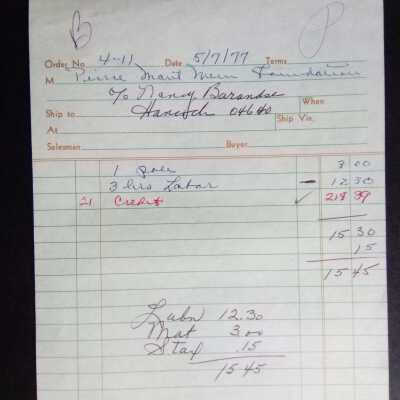 B P
Order No. 4-11 Date 5/7/77 Terms
M Pierre Mont Mem Foundation
% Nancy Barandse
Ship to Hancock 04640 When
At Ship Via.
Salesman Buyer
1 3 00
3 hrs Labor — 12 30
21 Credit ✓ 218 39
15 30
15
15 45
Labn 12.30
Mat 3.00
Stax .15
15 45